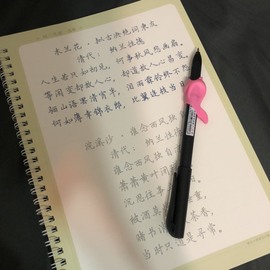 木兰花·拟古决绝词柬友
清代：纳兰性德
人生若只如初见，何事秋风悲画扇。
等闲变却故人心，却道故人心易变。
骊山语罢清宵半，泪雨霖铃终不怨。
何如薄幸锦衣郎，比翼连枝当
浣溪沙·谁念西风独自
清代：纳兰性
谁念西风独自
萧萧黄叶闭
沉思往事
被酒莫 重，
赌书 茶香，
当时只道是寻常。